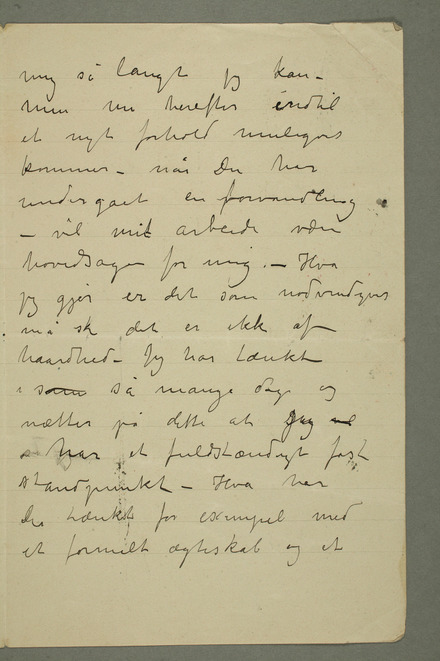 mig så langt jeg kan –
men nu herefter indtil
et nyt forhold muligvis
kommer – når Du har
undergået en forvandling
– vil mit arbeide være
hovedsagen for mig. – Hva
jeg gjør er det som nødvendigvis
må ske det er ikke af
haardhed – Jeg har tænkt
i som så mange dage og
nætter på dette at jeg vel
jeg har et fuldstændigt fast
standpunkt – Hva har
Du tænkt for exempel med
et formelt ægteskab og et